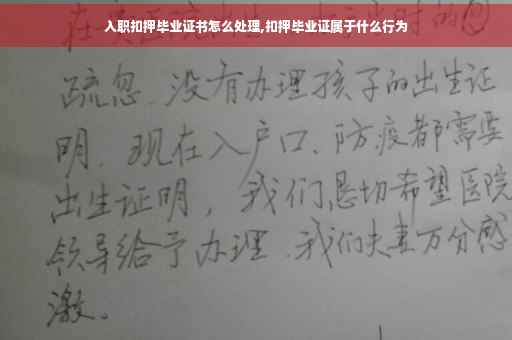 入职扣押毕业证书怎么处理,扣押毕业证属于什么行为
疏忽、没有办理孩子的出生证
明、现在入户口、防疫都需要
出生证明，我们恳切希望医院
领导给予办理、我们夫妻万分感
激。